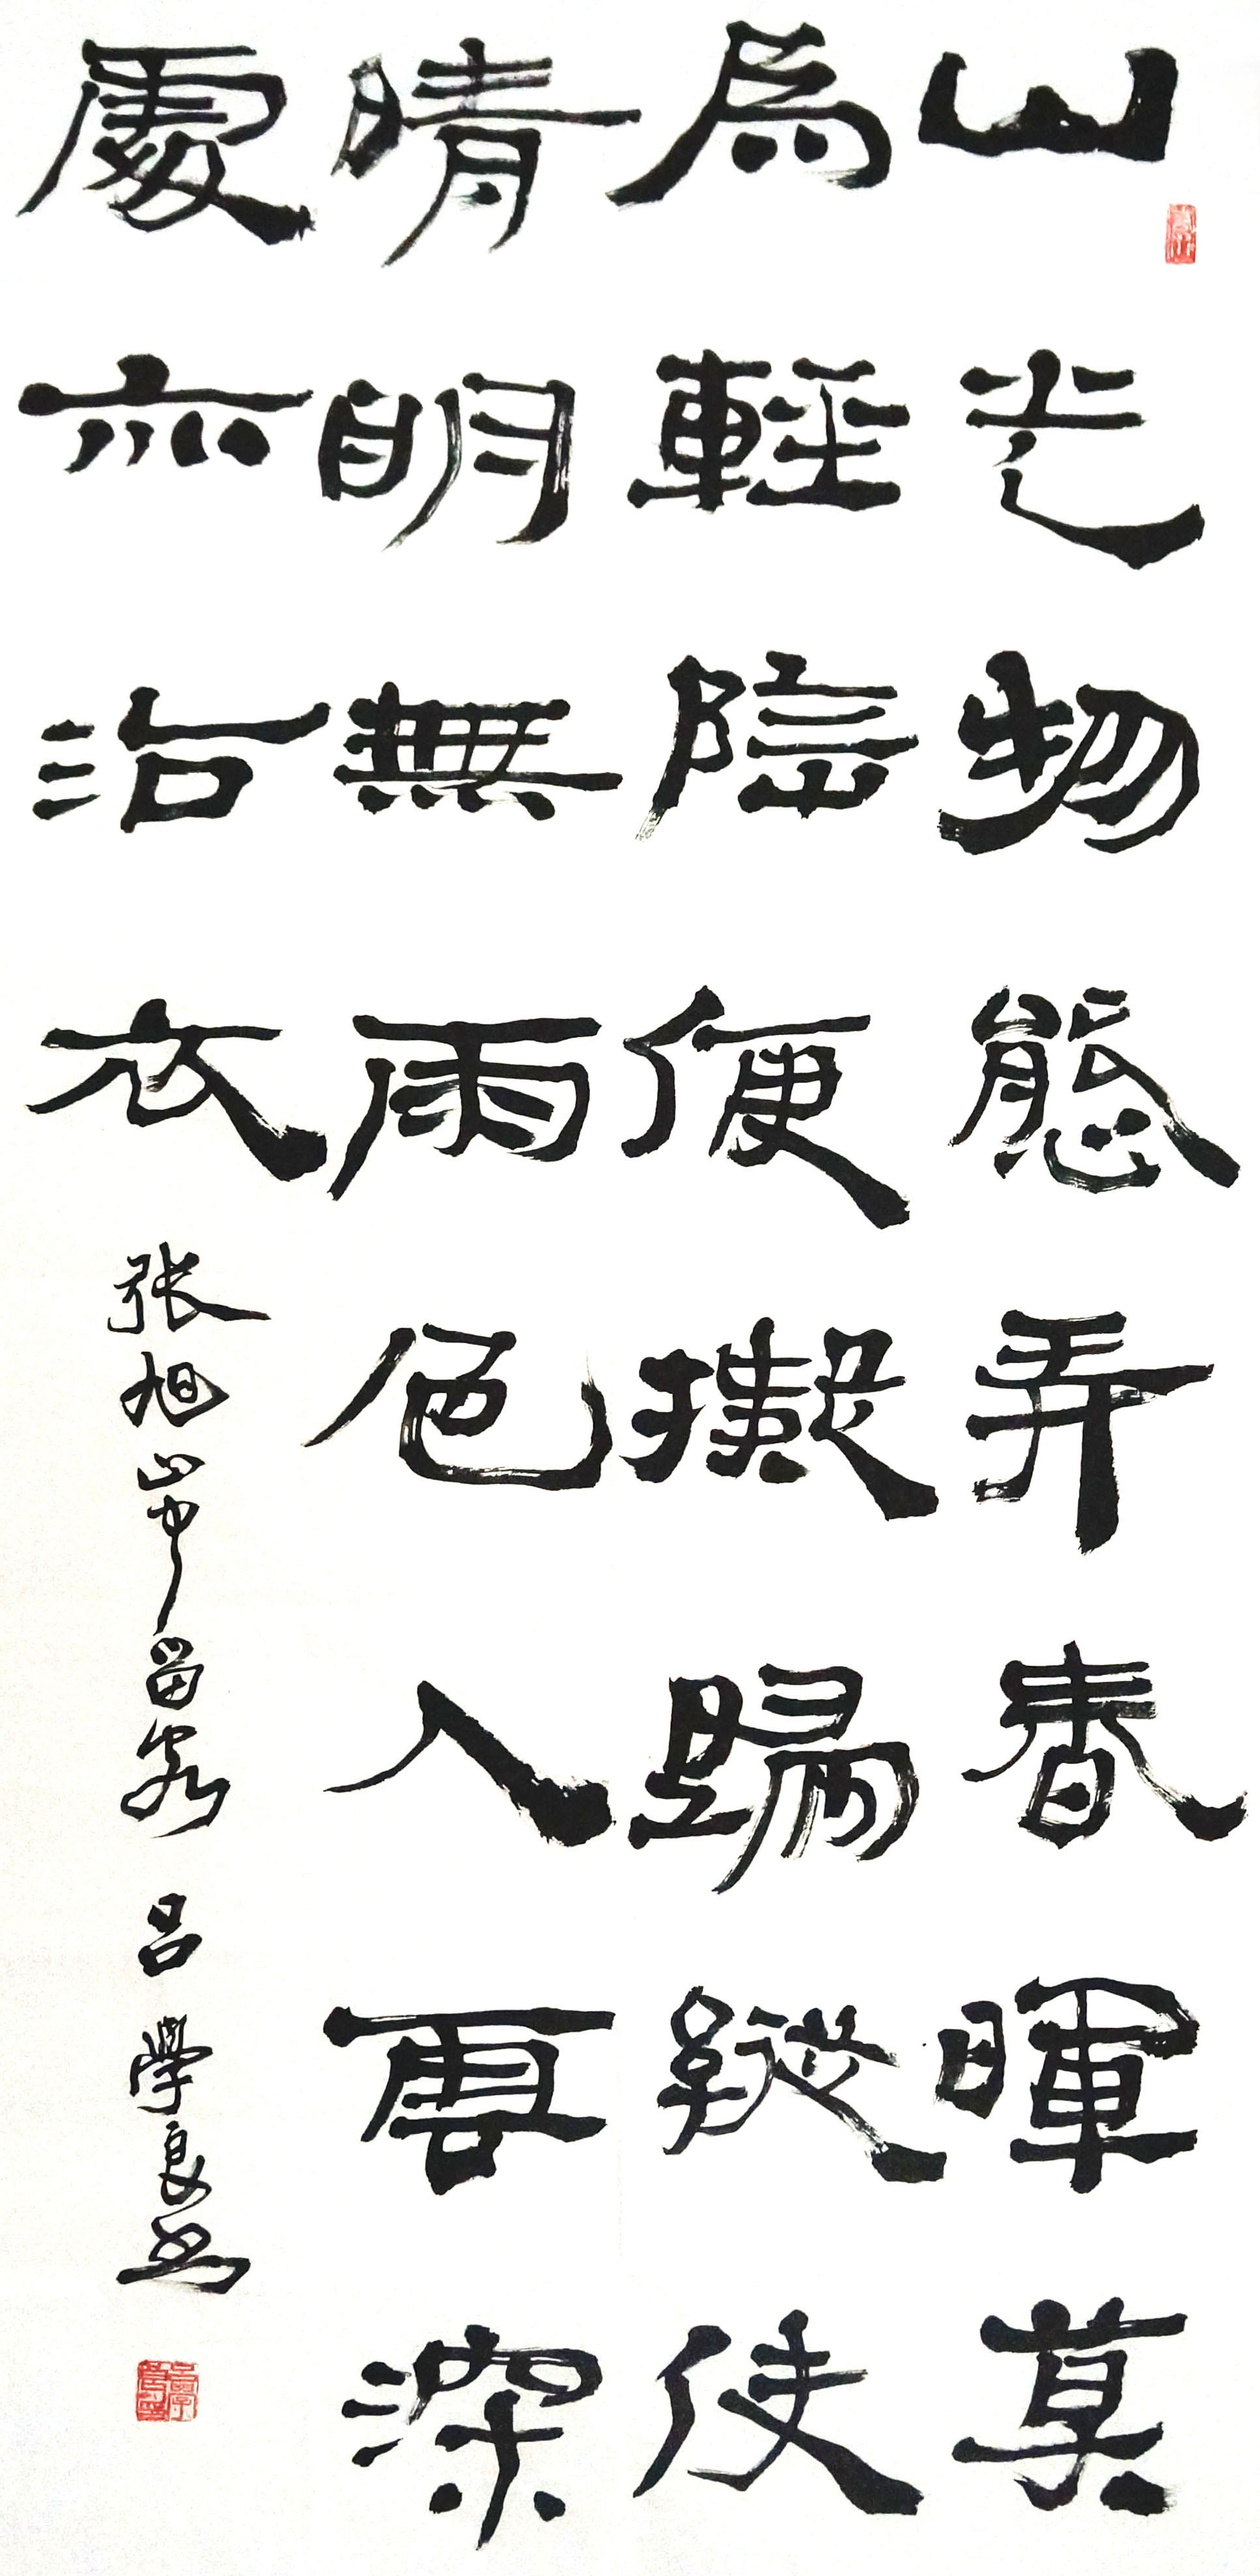 山光物態弄春暉莫
爲輕陰便擬歸縱使
晴明無雨色入雲深
處亦沾衣 張旭山中留客 呂學良书